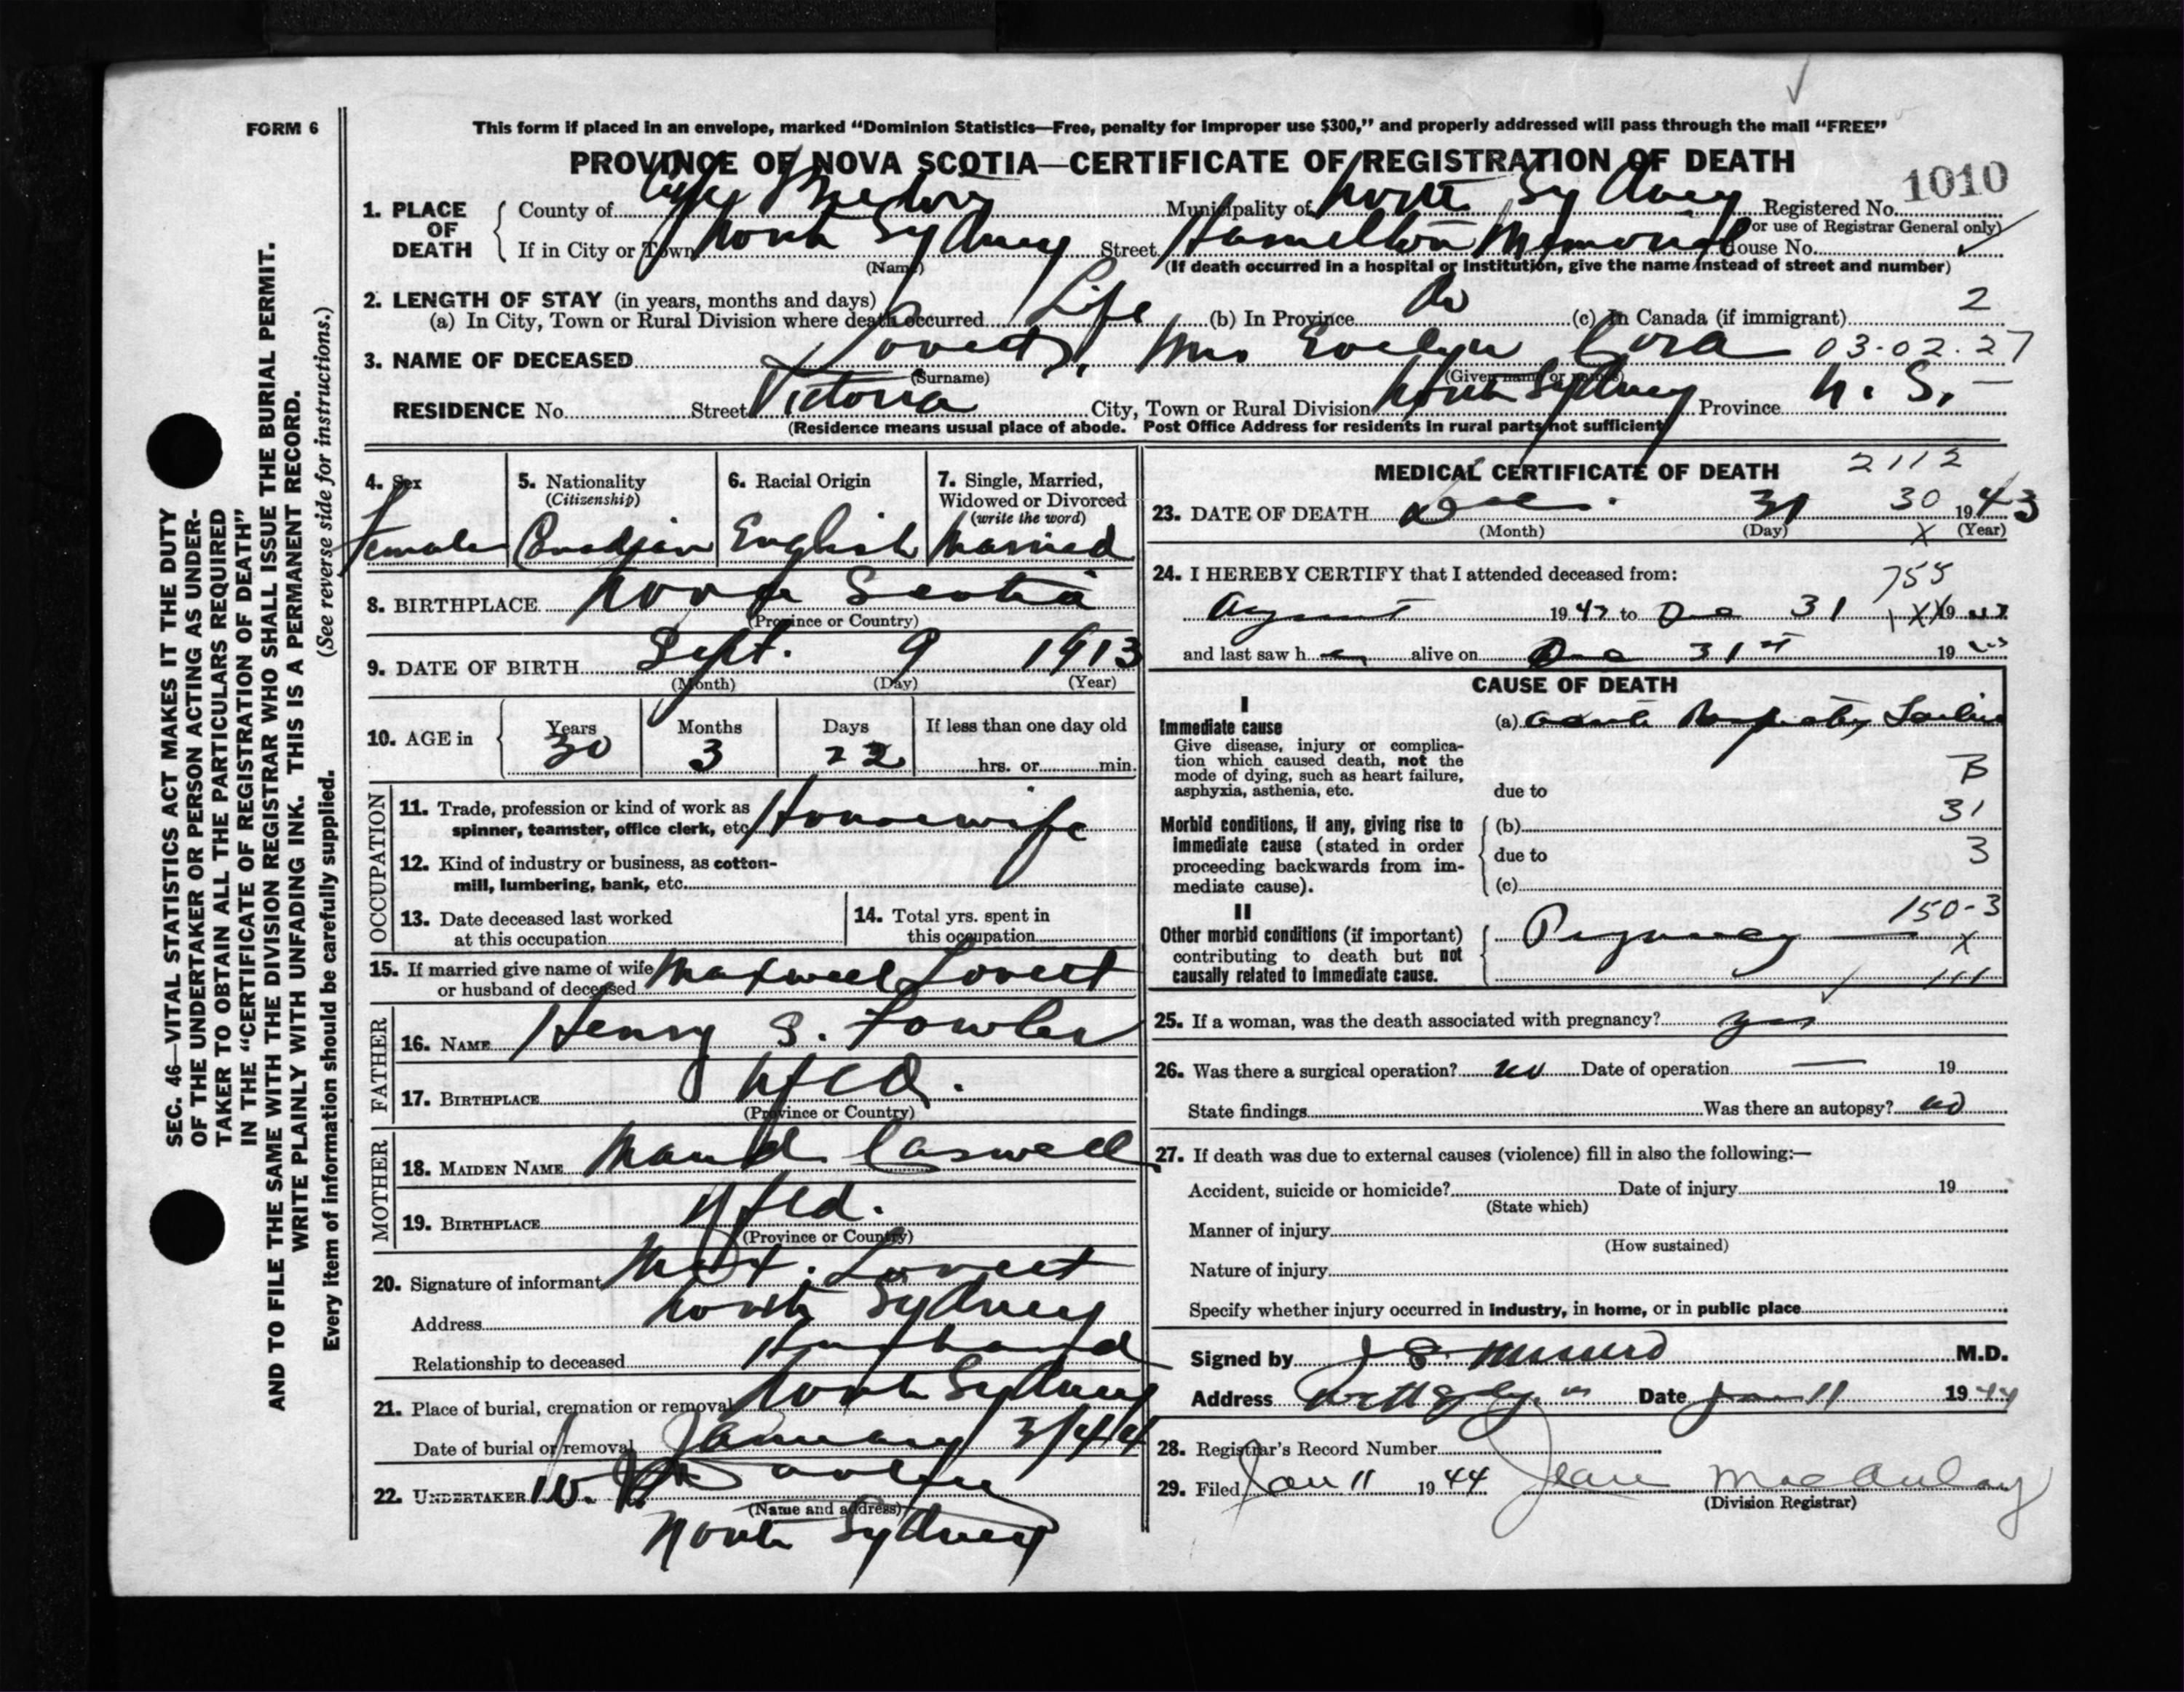 FORM 6
This form if placed in an envelope, marked “Dominion Statistics—Free, penalty for improper use $300,” and properly addressed will pass through the mail “FREE”
PROVINCE OF NOVA SCOTIA—CERTIFICATE OF REGISTRATION OF DEATH
1010
1. PLACE OF DEATH County of Cape Breton Municipality of North Sydney Registered No.
(For use of Registrar General only)
If in City or Town North Sydney Street Hamilton Memorial House No.
(Name) (If death occurred in a hospital or institution, give the name instead of street and number)
2. LENGTH OF STAY (in years, months and days)
(a) In City, Town or Rural Division where death occurred Life (b) In Province Do (c) In Canada (if immigrant) 2
3. NAME OF DECEASED Lovett, Mrs Evelyn Cora 03-02-27
(Surname) (Given name or names)
RESIDENCE No. Street Victoria City, Town or Rural Division North Sydney Province N. S. —
(Residence means usual place of abode. Post Office Address for residents in rural parts not sufficient)
4. Sex 5. Nationality (Citizenship) 6. Racial Origin 7. Single, Married, Widowed or Divorced (write the word)
Female Canadian English Married
8. BIRTHPLACE Nova Scotia
(Province or Country)
9. DATE OF BIRTH Sept. 9 1913
(Month) (Day) (Year)
10. AGE in Years Months Days If less than one day old
30 3 22 hrs. or min.
OCCUPATION
11. Trade, profession or kind of work as spinner, teamster, office clerk, etc. Housewife
12. Kind of industry or business, as cotton-mill, lumbering, bank, etc.
13. Date deceased last worked at this occupation
14. Total yrs. spent in this occupation
15. If married give name of wife or husband of deceased Maxwell Lovett
FATHER
16. NAME Henry S. Fowler
17. BIRTHPLACE Nfld.
(Province or Country)
MOTHER
18. MAIDEN NAME Maud Caswell
19. BIRTHPLACE Nfld.
(Province or Country)
20. Signature of informant Max. Lovett
Address North Sydney
Relationship to deceased Husband
21. Place of burial, cremation or removal North Sydney
Date of burial or removal January 3/44
22. UNDERTAKER W.
(Name and address)
North Sydney
MEDICAL CERTIFICATE OF DEATH 2112
23. DATE OF DEATH Dec. 31 30 1943
(Month) (Day) X (Year)
24. I HEREBY CERTIFY that I attended deceased from: 755
August 1943 to Dec 31 19 43
and last saw her alive on Dec 31st 19 43
CAUSE OF DEATH
I
Immediate cause (a) acute Respiratory Failure
Give disease, injury or complication which caused death, not the mode of dying, such as heart failure, asphyxia, asthenia, etc.
due to B
Morbid conditions, if any, giving rise to immediate cause (stated in order proceeding backwards from immediate cause).
(b) 31
due to 3
(c)
II
Other morbid conditions (if important) contributing to death but not causally related to immediate cause.
Pregnancy — 150-3
X
111
25. If a woman, was the death associated with pregnancy? yes
26. Was there a surgical operation? no Date of operation — 19
State findings Was there an autopsy? no
27. If death was due to external causes (violence) fill in also the following:—
Accident, suicide or homicide? Date of injury 19
(State which)
Manner of injury
(How sustained)
Nature of injury
Specify whether injury occurred in industry, in home, or in public place
Signed by M.D.
Address North Sydney Date Jan 11 1944
28. Registrar's Record Number
29. Filed Jan 11 1944 Jean MacAulay
(Division Registrar)
SEC. 46—VITAL STATISTICS ACT MAKES IT THE DUTY
OF THE UNDERTAKER OR PERSON ACTING AS UNDER-
TAKER TO OBTAIN ALL THE PARTICULARS REQUIRED
IN THE “CERTIFICATE OF REGISTRATION OF DEATH”
AND TO FILE THE SAME WITH THE DIVISION REGISTRAR WHO SHALL ISSUE THE BURIAL PERMIT.
WRITE PLAINLY WITH UNFADING INK. THIS IS A PERMANENT RECORD.
Every item of information should be carefully supplied. (See reverse side for instructions.)